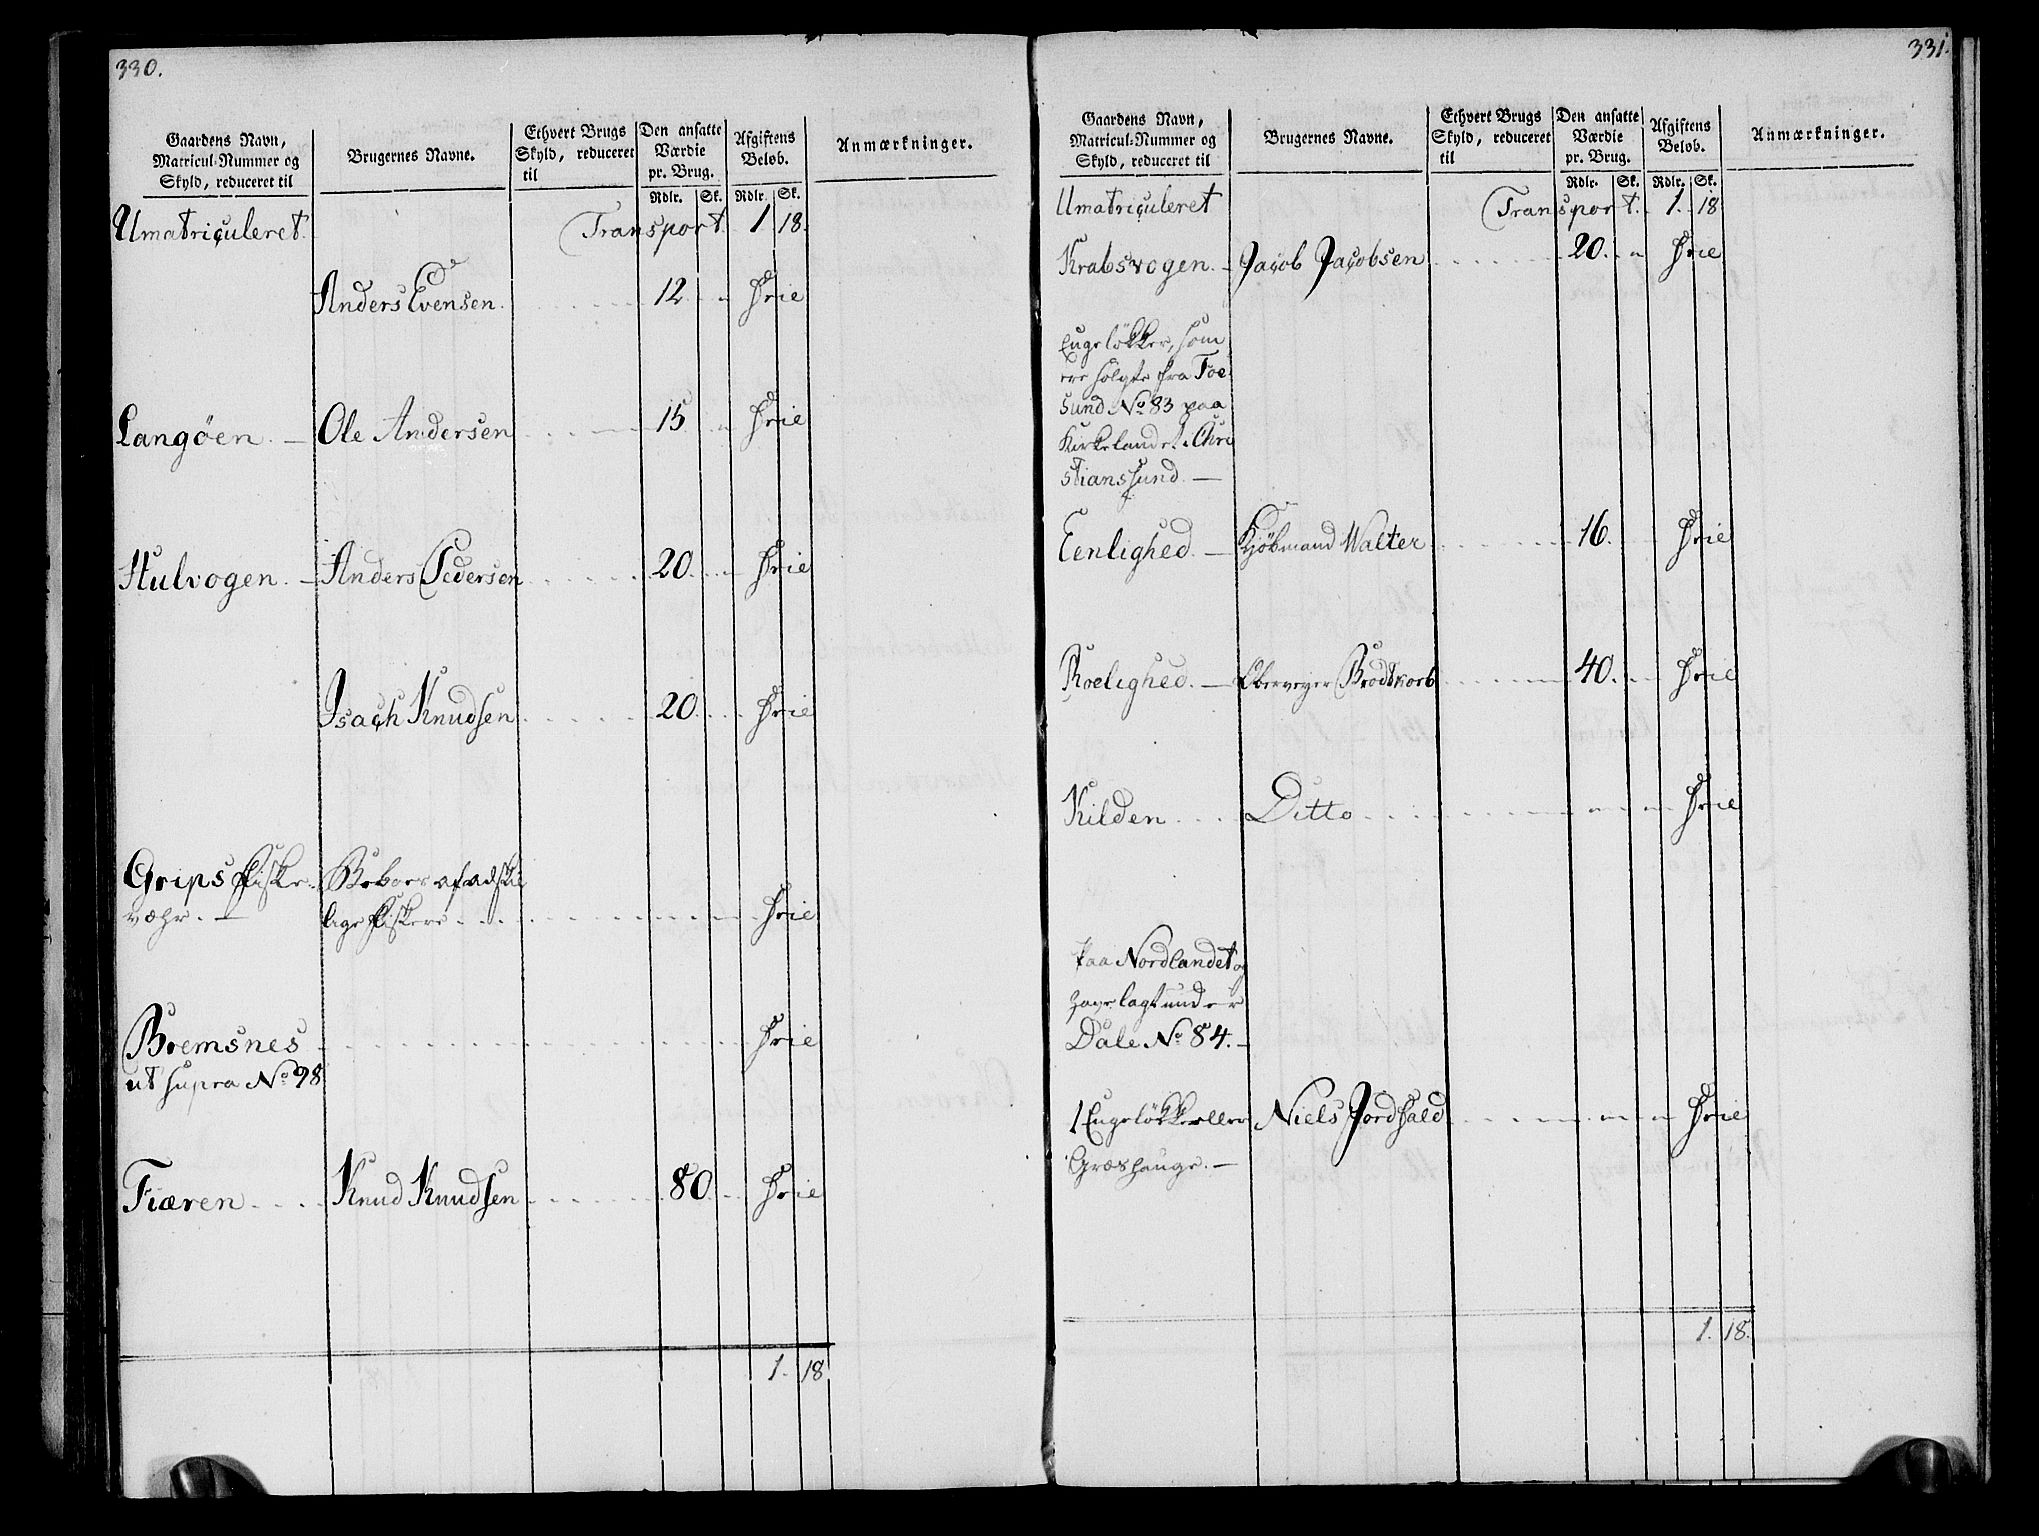 330.
Gaardens Navn, Matricul-Nummer og Skyld, reduceret til
Brugernes Navne.
Ethvert Brugs Skyld, reduceret til
Den ansatte Værdie pr. Brug.
Rdlr. Sk.
Afgiftens Beløb.
Rdlr. Sk.
Anmærkninger.
Umatriculeret. Transport. 1 18.
Anders Evensen. 12. " frie
Langøen. — Ole Andersen 15 " frie
Hulvogen. — Anders Pedersen 20. " frie
Isach Knudsen 20. frie
Grips Fiske-
væhr. —
Beboes af adskil
lige Fiskere. frie
Bremsnes frie
ut supra No 98
Fiæren Knud Knudsen 80. frie
1. 18
331.
Gaardens Navn, Matricul-Nummer og Skyld, reduceret til
Brugernes Navne.
Ethvert Brugs Skyld, reduceret til
Den ansatte Værdie pr. Brug.
Rdlr. Sk.
Afgiftens Beløb.
Rdlr. Sk.
Anmærkninger.
Umatriculeret Transport. 1. 18
Krabsvogen. — Jacob Jacobsen 20. " frie
Engeløkker, som
ere solgte fra Foe-
sund No 83 paa
Kirkelandet i Chri
stianssund. —
Eenlighed. — Kjöbmand Walter 16. frie
Roelighed. — Oberveyer Brodtkorb 40. frie
Kilden Ditto " " frie
Paa Nordlandet og
lagt under
Dale No 84. —
1 Engeløkke eller Niels Jordhald " " frie
Græshauge. —
1. 18.